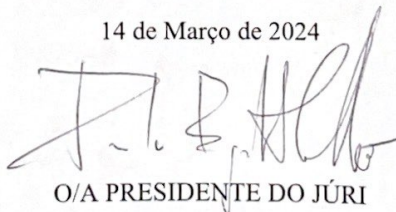 14 de Março de 2024
O/A PRESIDENTE DO JÚRI